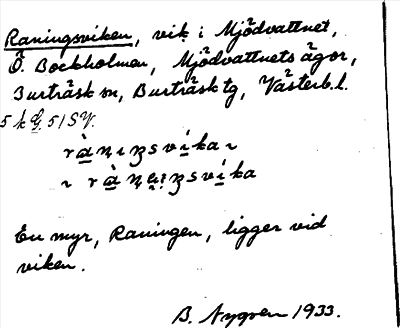 Raningsviken, vik i Mjödvattnet,
Ö. Bockholmen, Mjödvattnets ägor,
Burträsk sn, Burträsk tg, Västerb. l.
5 k 51 SV.
En myr, Raningen, ligger vid
viken.
B. Nygren 1933.